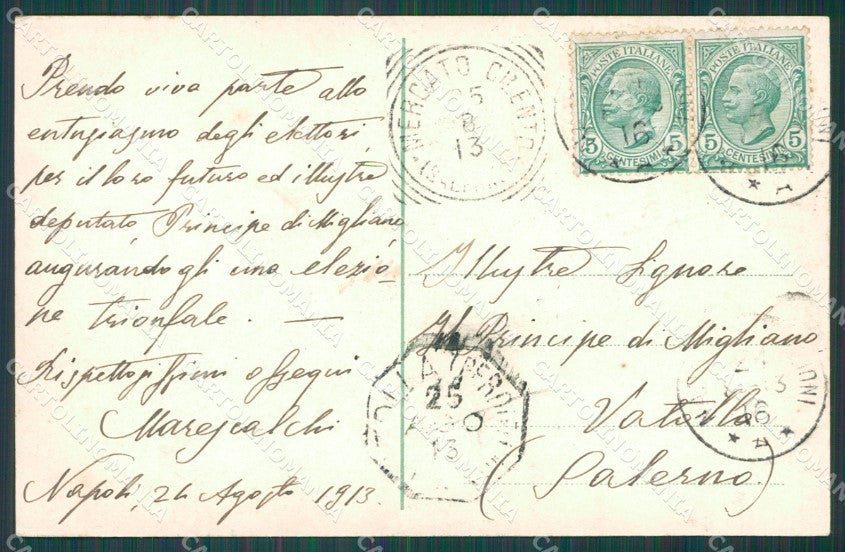 Prendo viva parte allo
entusiasmo degli elettori,
per il loro futuro ed illustre
deputato Principe di Migliano
augurandogli una elezio-
ne trionfale. —
Rispettosissimi ossequi
Marescalchi
Napoli, 24 Agosto 1913.
MERCATO CILENTO
25
8
13
(SALERNO)
POSTE ITALIANE
5 CENTESIMI 5
POSTE ITALIANE
5 CENTESIMI 5
16
Illustre Signore
Il Principe di Migliano
Vatolla
(Salerno)
25
CARTOLINOMANIA